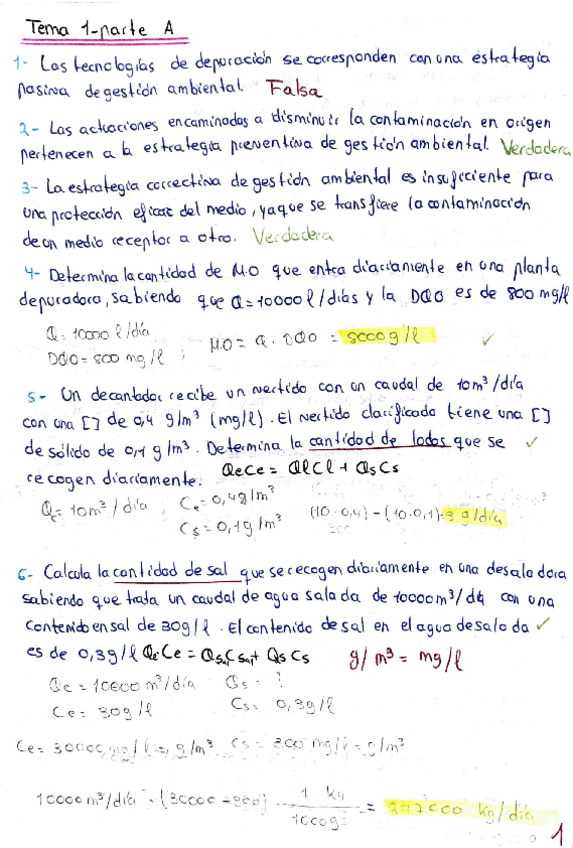 Tema 1-parte A
1- Las tecnologías de depuración se corresponden con una estrategia
pasiva de gestión ambiental. Falsa
2- Las actuaciones encaminadas a disminuir la contaminación en origen
pertenecen a la estrategia preventiva de gestión ambiental. Verdadera
3- La estrategia correctiva de gestión ambiental es insuficiente para
una protección eficaz del medio, ya que se transfiere la contaminación
de un medio receptor a otro. Verdadera
4- Determina la cantidad de M.O que entra diariamente en una planta
depuradora, sabiendo que Q=10000 l/días y la DQO es de 800 mg/l
Q= 10000 l/día
DQO= 800 mg/l ; MO= Q. DQO = 8000 g/l ✓
5- Un decantador recibe un vertido con un caudal de 10m³/día
con una [] de 0,4 g/m³ (mg/l). El vertido clarificado tiene una []
de sólido de 0,1 g/m³. Determina la cantidad de lodos que se ✓
recogen diariamente. QeCe = QlCl + QsCs
Qe= 10m³/día ; Ce= 0,4g/m³
Cs= 0,1g/m³ (10·0,4)-(10·0,1)=3 g/día
6- Calcula la cantidad de sal que se recogen diariamente en una desaladora
sabiendo que trata un caudal de agua salada de 10000m³/día con una
contenido en sal de 30g/l. El contenido de sal en el agua desalada ✓
es de 0,3g/l QeCe = QsalCsal + QsCs g/m³ = mg/l
Qe = 10000 m³/día Qs= ?
Ce= 30g/l Cs= 0,3g/l
Ce= 30000 mg/l = g/m³ Cs= 300 mg/l = g/m³
10000m³/día · (30000-300) · 1 kg / 1000g = 297000 kg/día
1